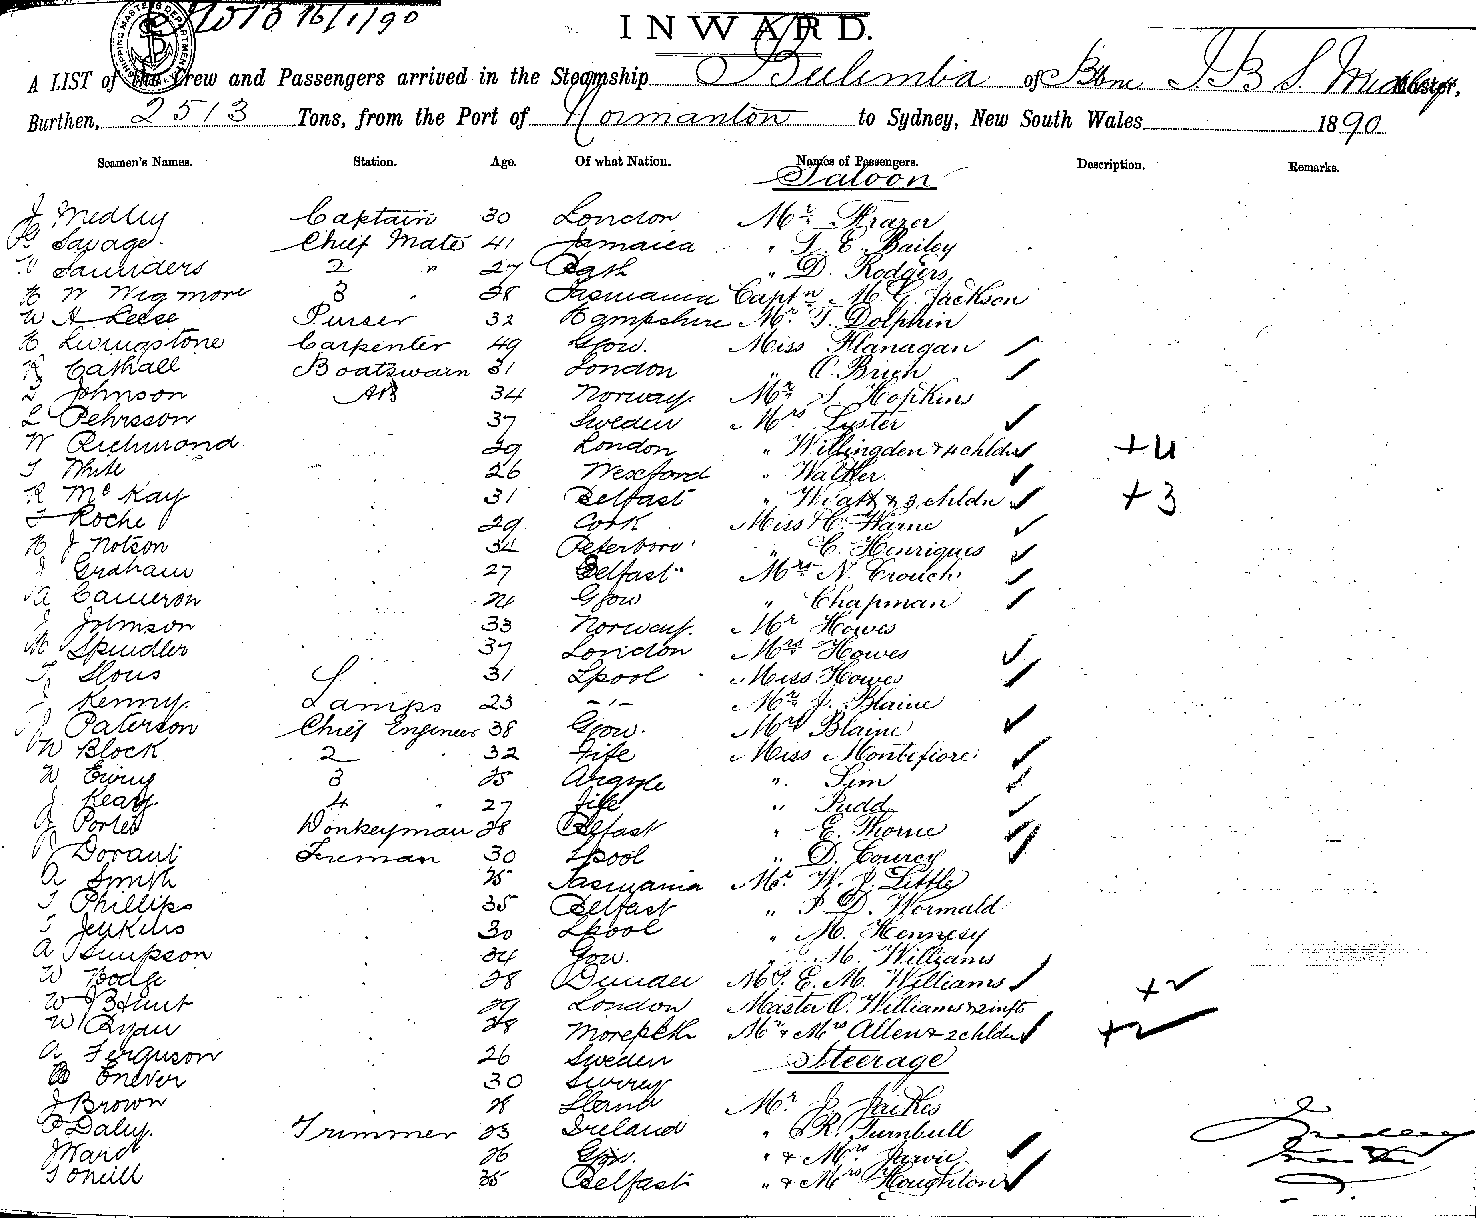 16/1/90
INWARD.
A LIST of the Crew and Passengers arrived in the Steamship Bulimba of Bbne J B S. Medley Master,
Burthen, 2513 Tons, from the Port of Normanton to Sydney, New South Wales 1890
Seamen's Names. Station. Age. Of what Nation. Names of Passengers. Description. Remarks.
Saloon
J Medley Captain 30 London Mr Frazer
Savage Chief Mate 41 Jamaica " T. E. Bailey
Saunders 2 " 27 Bath " D. Rodgers
H W Wigmore 3 " 28 Tasmania Captn M. G. Jackson
W A Leese Purser 32 Hampshire Mr T. Dolphin
H Livingstone Carpenter 49 Gow. Miss Flanagan
Cathall Boatswain 31 London " O'Brien
Johnson AB 34 Norway Mr S Hopkins
L Pehrsson 37 Sweden Mrs Lyster
W Richmond 29 London " Willingden & 4 chldn +4
T White 26 Wexford " Walker
R McKay 31 Belfast " Wyatt & 3 chldn +3
T Roche 29 Cork Miss C. Warne
H J Notson 34 Peterboro' " C. Henriques
J Graham 27 Belfast Mrs N. Crouch
A Cameron 24 Gow " Chapman
J Johnson 33 Norway. Mr Howes
Spindler 37 London Mrs Howes
31 Lpool Miss Howes
J Kenny Lamps 23 -"- Mr J. Blaine
Paterson Chief Engineer 38 Gow. Mrs Blaine
W Block 2 32 Fife Miss Montefiore
W Ewing 3 25 Argyle " Sim
J Keay 4 " 27 Fife " Tudd
Porter Donkeyman 28 Belfast " E. Thorne
Dorant Fireman 30 Lpool " D. Courcy
A Smith 25 Tasmania Mr W. J. Little
T Phillips 35 Belfast " P D. Wormald
T Jenkins 30 Lpool " M. Hennesy
A Simpson 34 Gow. " M. Williams
W Hodge 28 Dundee E. M. Williams +2
W J B Hunt 29 London Master O. Williams & 2 infts
W Ryan 28 Morepeth Mr & Mrs Allen & 2 chldn +2
A Ferguson 26 Sweden Steerage
Enever 30 Surrey
J Brown 28 Mr J. Jackes
P Daley. Trimmer 23 Ireland " R. Turnbull
J Ward 26 Gow. " & Mrs Jarvie
T Oneill 25 Belfast " & Mrs Houghton
J Medley
Master